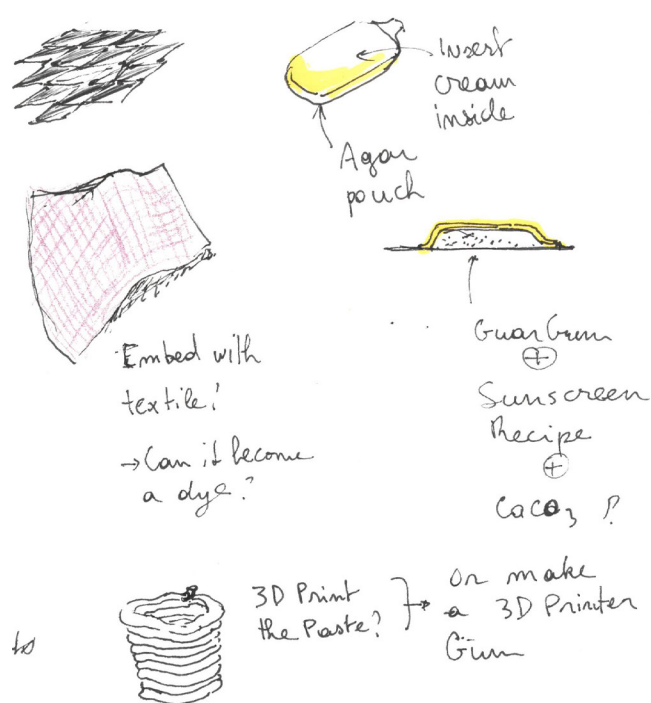 Insert
cream
inside
Agar
pouch
Embed with
textile?
→ Can it become
a dye?
Guar Gum
+
Sunscreen
Recipe
+
CaCO3 ?
3D Print
the Paste?
→ or make
a 3D Printer
Gum
to